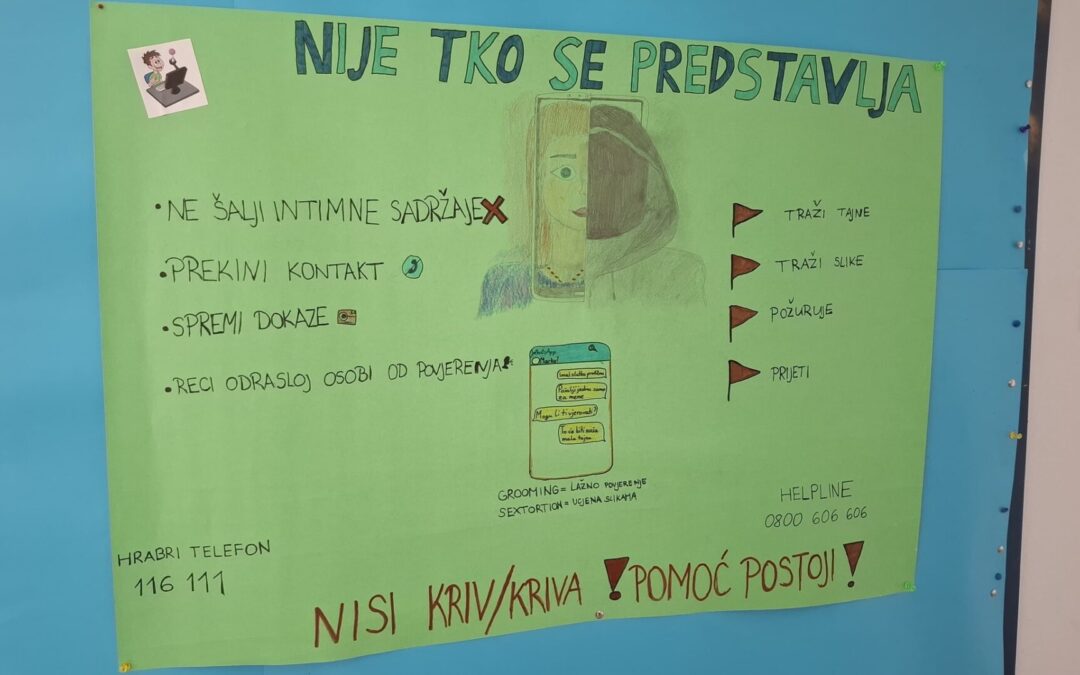 NIJE TKO SE PREDSTAVLJA
• NE ŠALJI INTIMNE SADRŽAJE
• PREKINI KONTAKT
• SPREMI DOKAZE
• RECI ODRASLOJ OSOBI OD POVJERENJA
TRAŽI TAJNE
TRAŽI SLIKE
POŽURUJE
PRIJETI
WhatsApp
Pošalji jednu samo
za mene
Mogu li ti vjerovati?
To će biti naša
mala tajna
GROOMING = LAŽNO POVJERENJE
SEXTORTION = UCJENA SLIKAMA
HELPLINE
0800 606 606
HRABRI TELEFON
116 111
NISI KRIV/KRIVA ! POMOĆ POSTOJI !